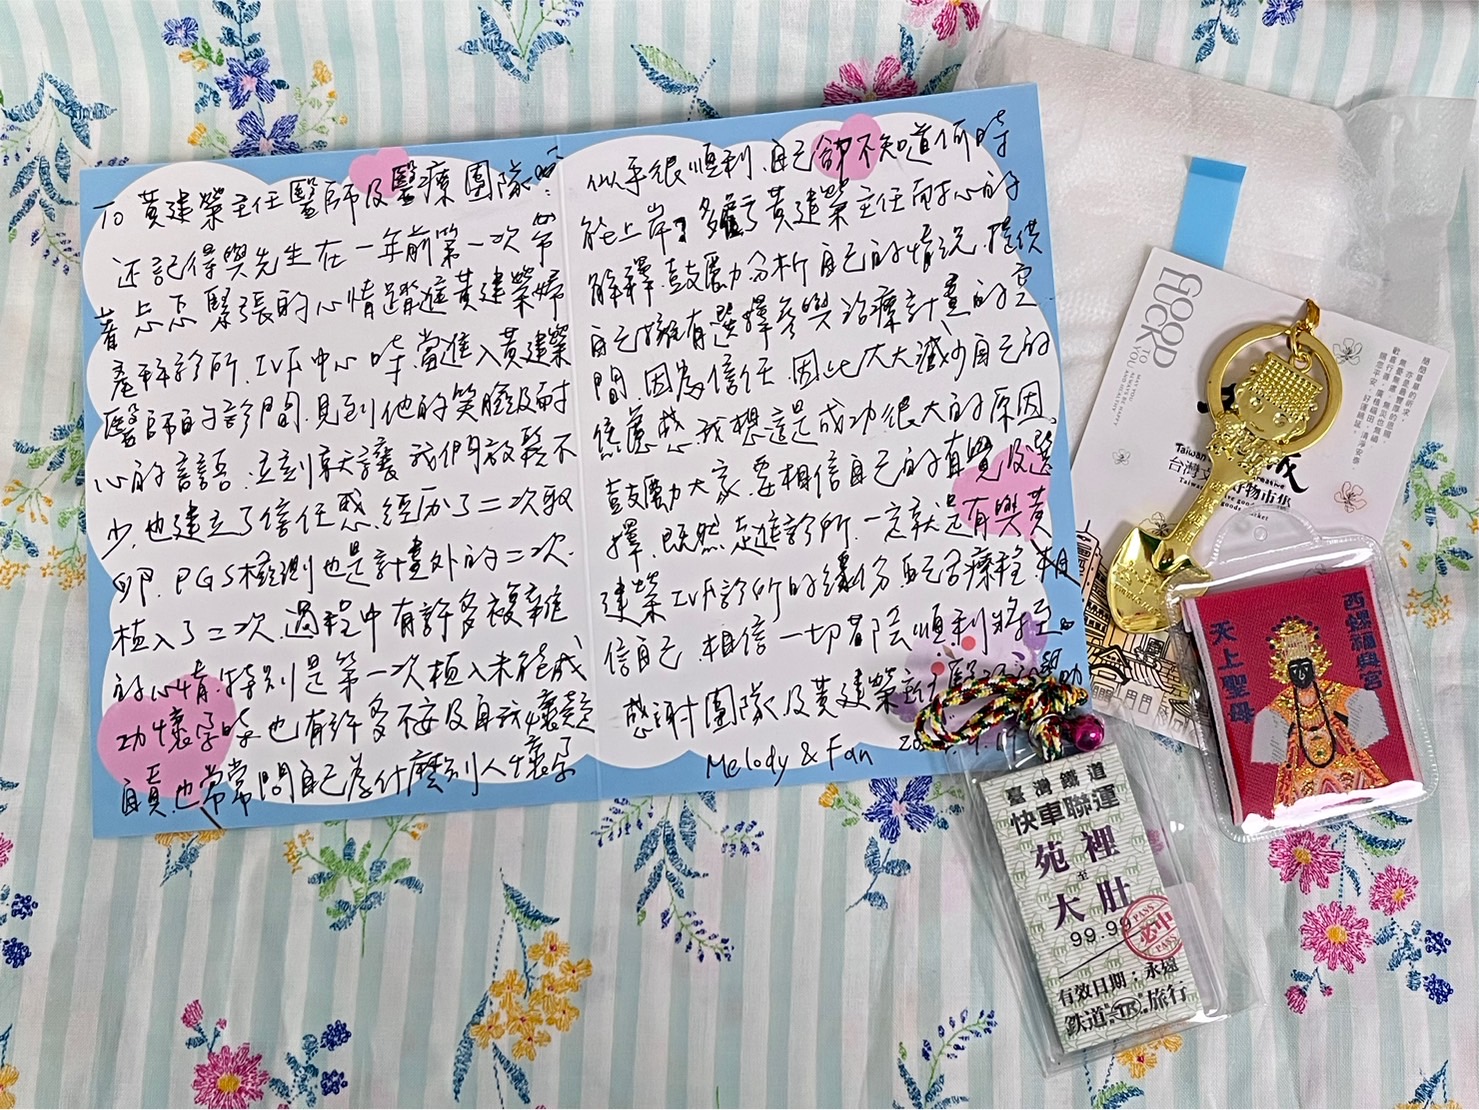 To 黃建榮主任醫師及醫療團隊們:
還記得與先生在一年前第一次帶
著忐忑緊張的心情踏進黃建榮婦
產科診所.IVF中心時.當進入黃建榮
醫師的診間.見到他的笑臉及耐
心的言語.立刻就讓我們放鬆不
少.也建立了信任感.經歷了二次取
卵.PGS檢測也是計畫外的二次.
植入了二次.過程中有許多複雜
的心情.特別是第一次植入未能成
功懷孕時.也有許多不安及自我懷疑
自責.也常常問自己為什麼別人懷孕
似乎很順利.自己卻不知道何時
能上岸?多虧了黃建榮主任耐心的
解釋.鼓勵分析自己的情況.提供
自己擁有選擇參與治療計畫的空
間.因為信任.因此大大減少自己的
焦慮感.我想這是成功很大的原因.
鼓勵大家.要相信自己的直覺及選
擇.既然走進診所.一定就是有與黃
建榮IVF診所的緣份.配合療程.相
信自己.相信一切都會順利將至.
感謝團隊及黃建榮主任醫
Melody & Fan
GOOD
LUCK
TO
YOU
MAY YOU
ALWAYS BE HAPPY
AND HEALTHY
Taiwan
台灣
物市集
西螺福興宮
天上聖母
臺灣鐵道
快車聯運
苑裡
至
大肚
99.99
PASS
必中
PASS
有效日期:永遠
鉄道 TR 旅行